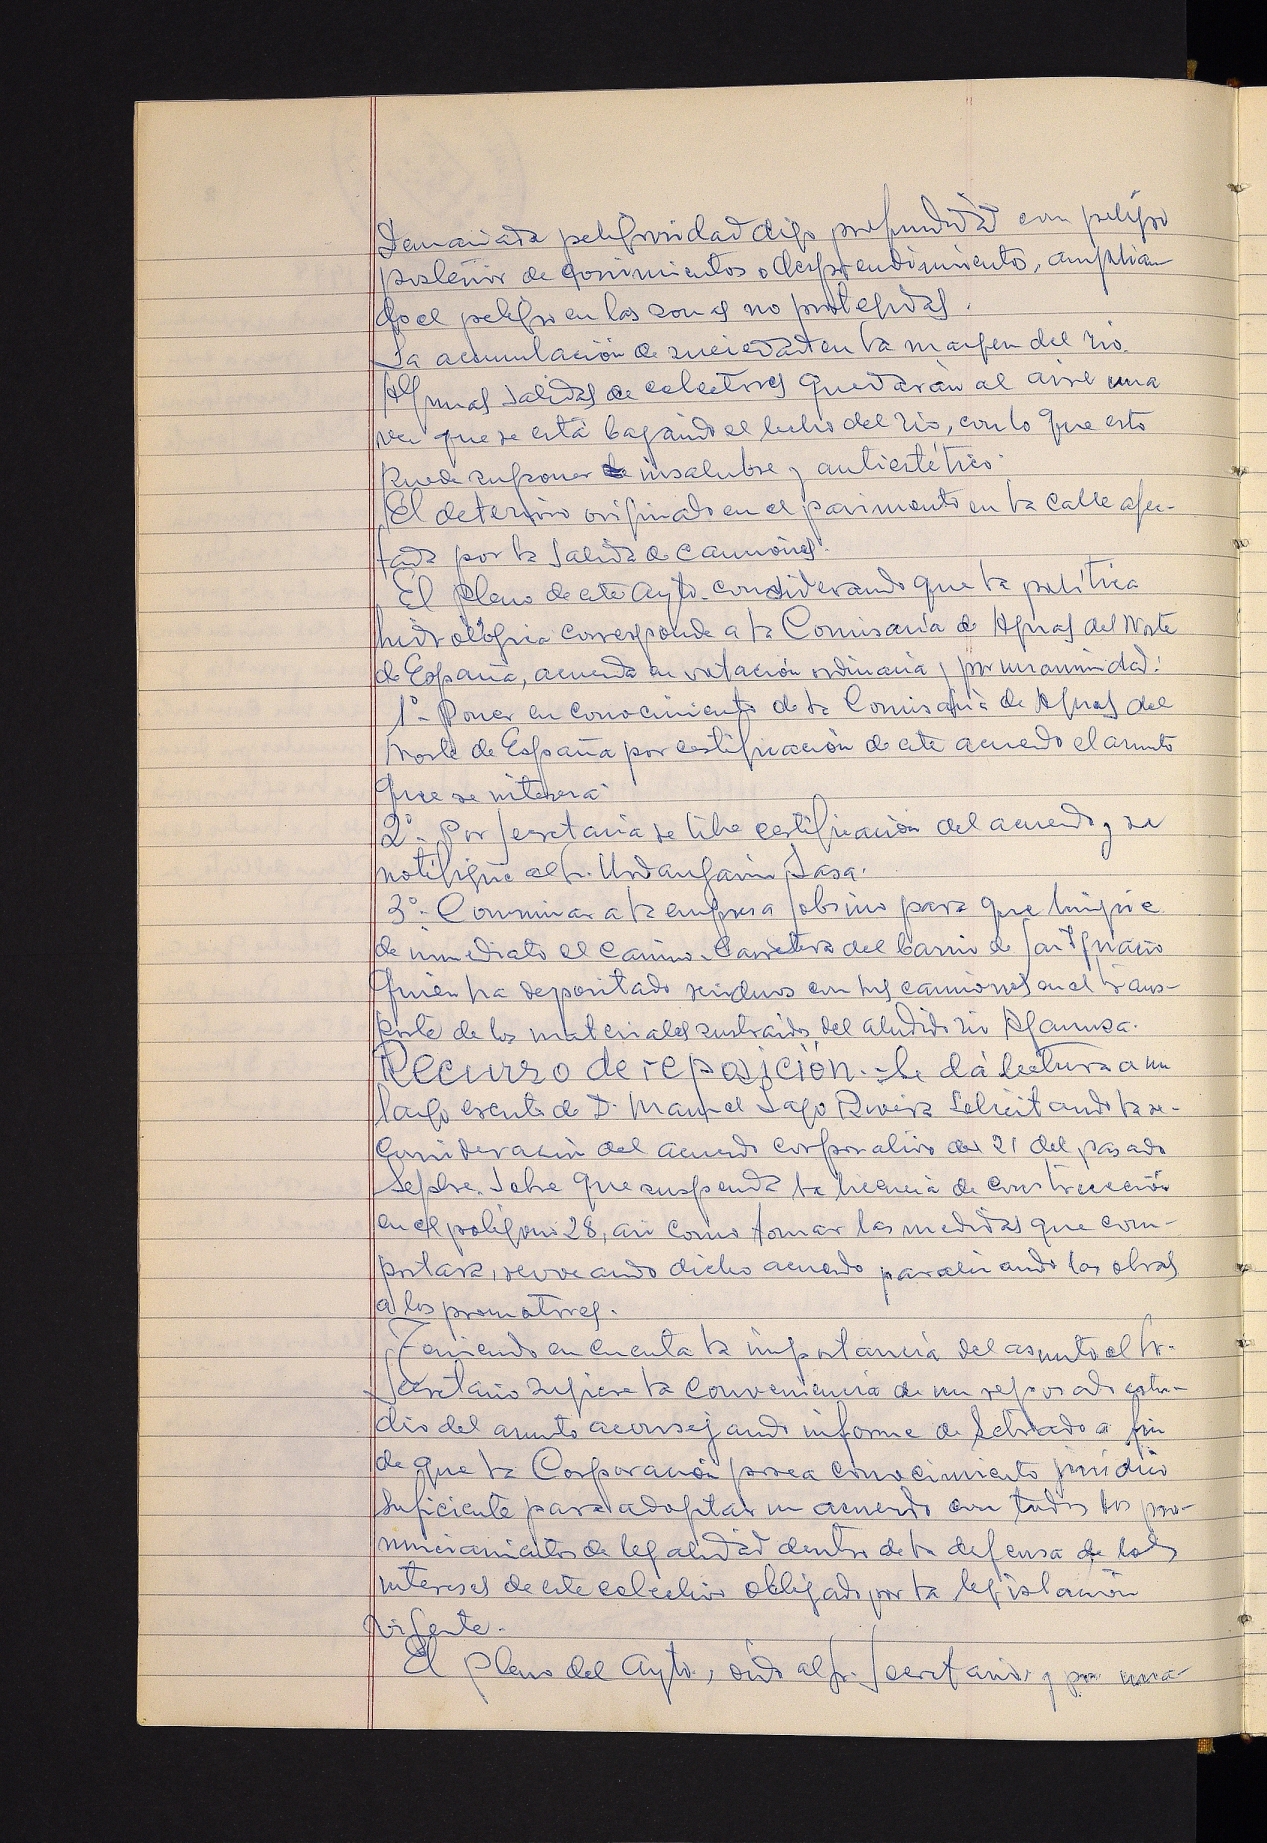 Demasiada peligrosidad digo profundidad con peligro
posterior de corrimientos o desprendimiento, amplian-
do el peligro en las zonas no protegidas.
La acumulación de suciedad en la margen del rio.
Algunas salidas de colectores quedarán al aire una
vez que se está bajando el lecho del rio, con lo que esto
puede suponer insalubre y antiestético.
El deterioro originado en el pavimento en la calle afec-
tada por la salida de camiones.
El pleno de este Ayto. considerando que la política
hidrológica corresponde a la Comisaría de Aguas del Norte
de España, acuerda en votación ordinaria y por unanimidad:
1º- Poner en conocimiento de la Comisaría de Aguas del
Norte de España por certificación de este acuerdo el asunto
que se interesa.
2º- Por Secretaria se libre certificación del acuerdo y se
notifique al Sr. Urdangarin Sasa.
3º- Conminar a la empresa Sobrino para que limpie
de inmediato el camino-carretera del barrio de San Ignacio
quien ha depositado residuos con sus camiones en el trans-
porte de los materiales sustraidos del aludido rio Agaunza.
Recurso de reposición.- Se dá lectura a un
largo escrito de D. Manuel Lago Rivera solicitando la re-
consideración del acuerdo corporativo del 21 del pasado
Sepbre. sobre que suspenda la licencia de construcción
en el polígono 28, asi como tomar las medidas que com-
portara, revocando dicho acuerdo paralizando las obras
a los promotores.
Teniendo en cuenta la importancia del asunto el Sr.
Secretario sugiere la conveniencia de un reposado estu-
dio del asunto aconsejando informe de Letrado a fin
de que la Corporación posea conocimiento jurídico
suficiente para adoptar un acuerdo con todos los pro-
nunciamientos de legalidad dentro de la defensa de los
intereses de este colectivo obligado por la legislación
vigente.
El pleno del Ayto., oido al Sr. Secretario y por una-